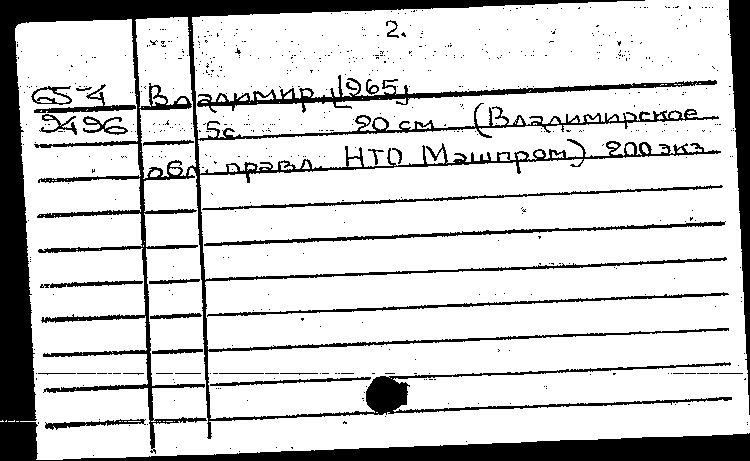 2.
65-4 Владимир, [1965]
9496 5с. 20 см. (Владимирское
обл. правл. НТО Машпром) 200 экз.